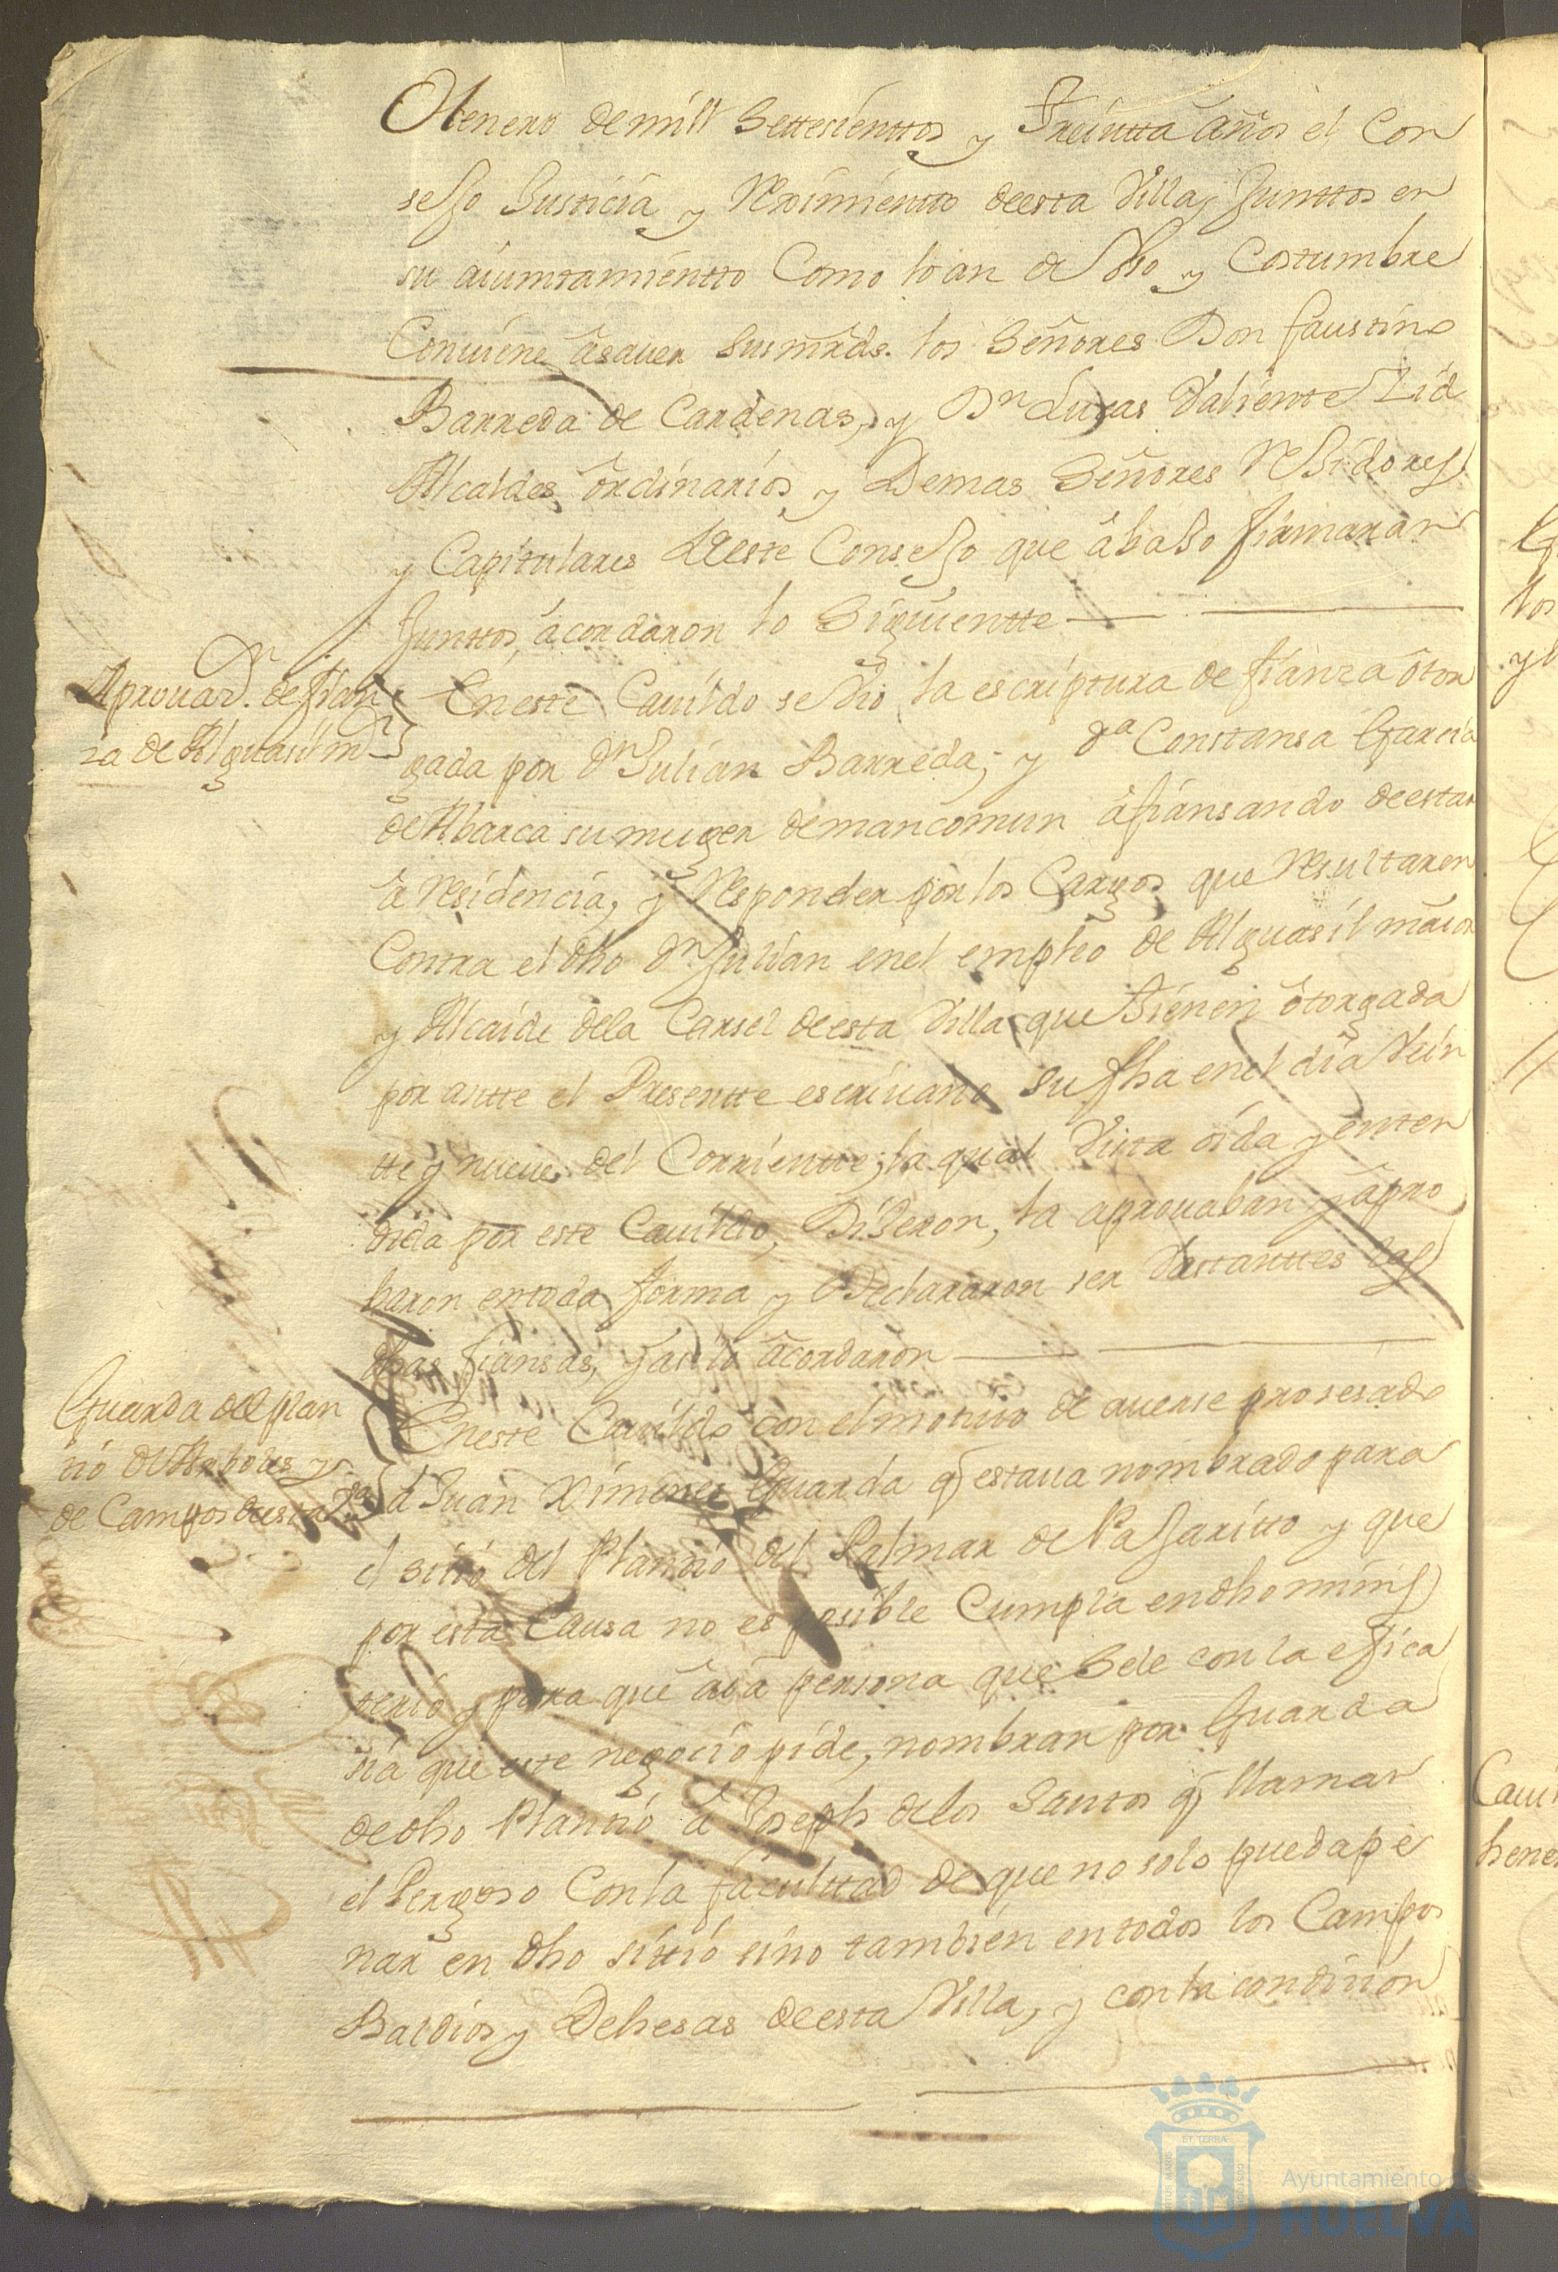 de henero de mill settesienttos y Treintta años el Con
sejo Justicia y Reximientto deesta Villa, Junttos en
su aiumtamientto Como lo an de Vso y Costumbre
Conuiene âsauer susmrds. los Señores Don faustino
Barreda de Cardenas, y Dn Lucas Valiente Lid
Alcaldes ôrdinarios y Demas Señores Rejidores
y Capitulares deeste Consejo que âbajo firmaran
Junttos, âcordaron lo Siguientte
Aprouazn. de fian
za de Alguasil mr
Eneste Cauildo se vio la escriptura de fianza ôtor
gada por Dn Julian Barreda; y Da Constansa Garcia
de Abarca su muger demancomun âfiansando deestar
â residencia, y Responder por los Cargos que resultaren
Contra el dho Dn Julian enel empleo de Alguasil maior
y Alcaide dela Carsel deesta Villa que tienen ôtorgada
por antte el Presentte escriuano su fha enel dia Vein
tte y nueue del Corrientte, la qual Vista oida y enten
dida por este Cauildo, Dijeron, la aprouaban y âpro
baron entoda forma y Declararon ser Vastanttes las
dhas fiansas, y asi lo âcordaron
Guarda del plan
tio de Arboles y
de Campos desta Va
Eneste Cauildo con el motiuo de auerse prosesado
â Juan Ximenes Guarda q estaua nombrado para
el sitio del Plantio del Palmar de Pajaritto y que
por esta Causa no es posible Cumpla endho minis
terio y para que âia persona que Sele con la efica
sia que este negocio pide, nombran por Guarda
de dho Plantio â Joseph delos Santos q llaman
el Pergoso Con la facultad de que no solo pueda pe
nar en dho sittio sino tambien entodos los Campos
Baldios y Dehesas deesta Villa, y con la condicion
Ayuntamiento de
HUELVA